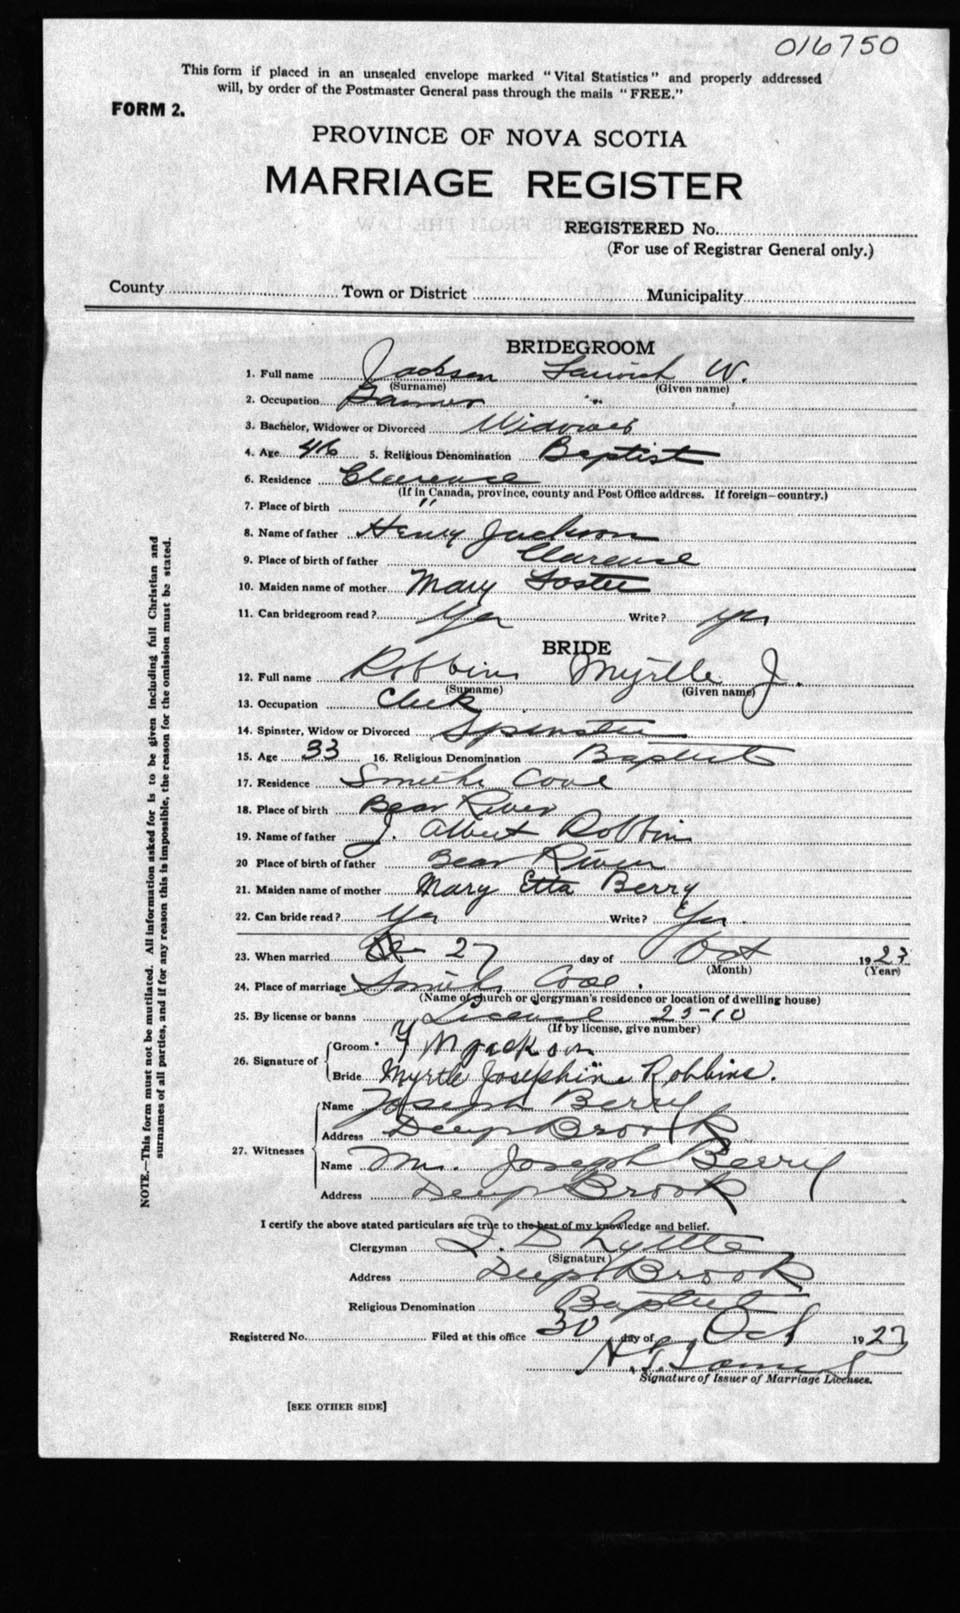 016750
This form if placed in an unsealed envelope marked "Vital Statistics" and properly addressed
will, by order of the Postmaster General pass through the mails "FREE."
FORM 2.
PROVINCE OF NOVA SCOTIA
MARRIAGE REGISTER
REGISTERED No.
(For use of Registrar General only.)
County Town or District Municipality
BRIDEGROOM
1. Full name Jackson W.
(Surname) (Given name)
2. Occupation Farmer
3. Bachelor, Widower or Divorced Widower
4. Age 46 5. Religious Denomination Baptist
6. Residence Clarence
(If in Canada, province, county and Post Office address. If foreign—country.)
7. Place of birth "
8. Name of father Henry Jackson
9. Place of birth of father Clarence
10. Maiden name of mother Mary Foster
11. Can bridegroom read? Yes Write? yes
BRIDE
12. Full name Robbins Myrtle J.
(Surname) (Given name)
13. Occupation Clerk
14. Spinster, Widow or Divorced Spinster
15. Age 33 16. Religious Denomination Baptist
17. Residence Smiths Cove
18. Place of birth Bear River
19. Name of father J. Albert Robbins
20 Place of birth of father Bear River
21. Maiden name of mother Mary Etta Berry
22. Can bride read? Yes Write? Yes.
23. When married 27 day of Oct 1923
(Month) (Year)
24. Place of marriage Smiths Cove.
(Name of church or clergyman's residence or location of dwelling house)
25. By license or banns License
(If by license, give number)
26. Signature of Groom Jackson
Bride Myrtle Josephine Robbins.
27. Witnesses Name Joseph Berry
Address Deep Brook
Name Mrs. Joseph Berry
Address Deep Brook
I certify the above stated particulars are true to the best of my knowledge and belief.
Clergyman
(Signature)
Address Deep Brook
Religious Denomination Baptist
Registered No. Filed at this office 30 day of Oct 1923
Signature of Issuer of Marriage Licenses.
[SEE OTHER SIDE]
NOTE.—This form must not be mutilated. All information asked for is to be given including full Christian and
surnames of all parties, and if for any reason this is impossible, the reason for the omission must be stated.